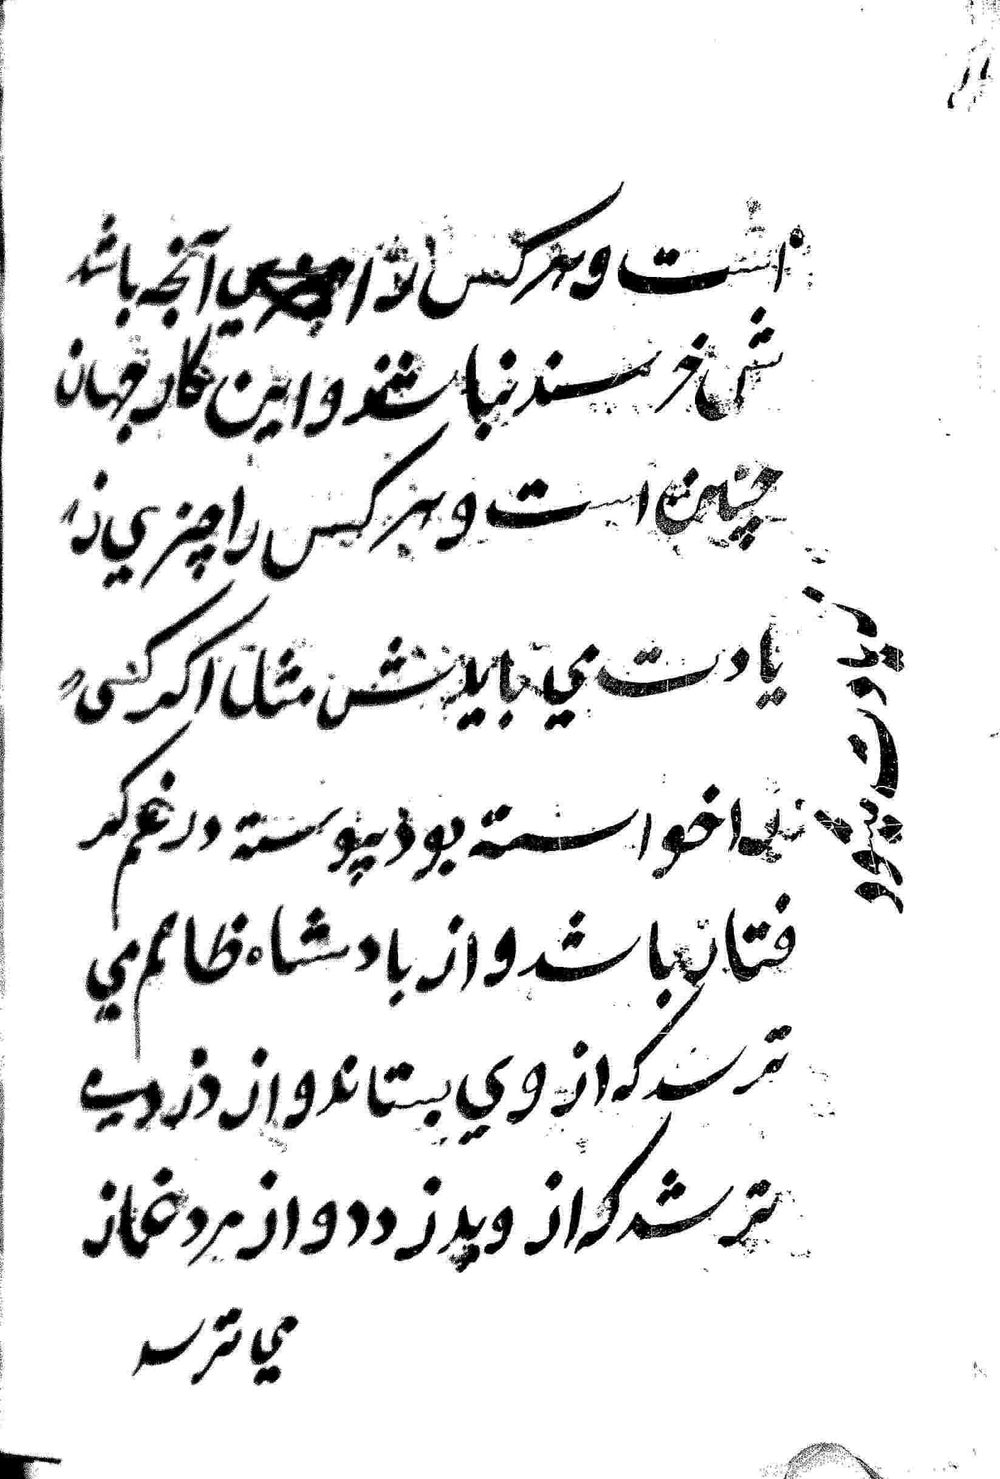 است و هر کس از آنجه باشد
ش خرسند نباشند و این کار جهان
چنین است و هر کس را چیزي ز
یادت مي بایدش مثلا اکر کسی
خواسته بوذ پیوسته در غم کر
فتار باشد و از بادشاه ظالم مي
ترسد که از وي بستاند و از دزد
ترسد که از وي دزدد و از مرد غماز
مي ترسد
زیادت